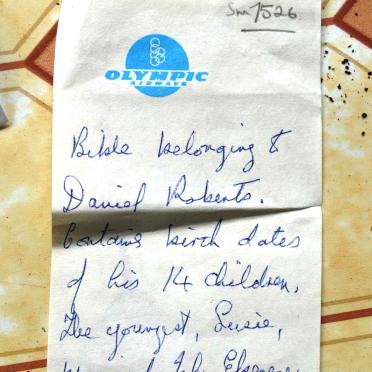 Sm 1526.
OLYMPIC
AIRWAYS
Bible belonging to
Daniel Roberts.
Contains birch dates
of his 14 children.
The youngest, Susie,